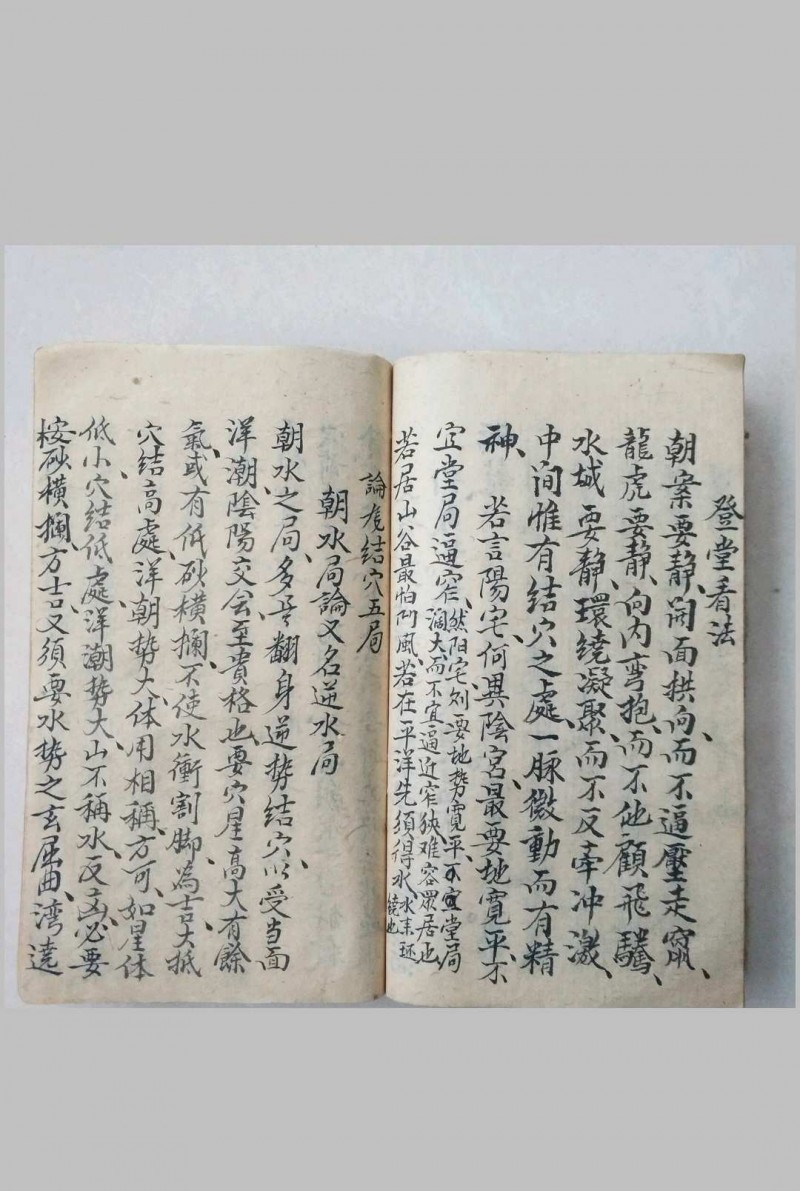 登堂看法
朝案要静、開面拱向、而不逼壓走竄、
龍虎要静、向内弯抱、而不他顧飛騰、
水城要静、環繞凝聚、而不反牽冲激、
中间惟有结穴之處、一脉微動而有精
神、若言陽宅、何異陰宫、最要地寛平、不
宜堂局逼窄、然阳宅则要地势寛平、不宜堂局
濶大而不宜逼近窄狹难容眾居也
若居山谷最怕凹風、若在平洋先須得水、水来环
繞也
論龙结穴五局
朝水局論又名逆水局
朝水之局、多是翻身逆势结穴、以受当面
洋潮、陰陽交会、至貴格也、要穴星高大有餘
氣、或有低砂橫攔、不使水衝割脚、為吉、大抵
穴结高處、洋朝势大、体用相稱、方可、如星体
低小、穴结低處、洋潮势大、山不稱水、反凶、必要
桉砂橫攔方吉、又须要水势之玄屈曲、湾